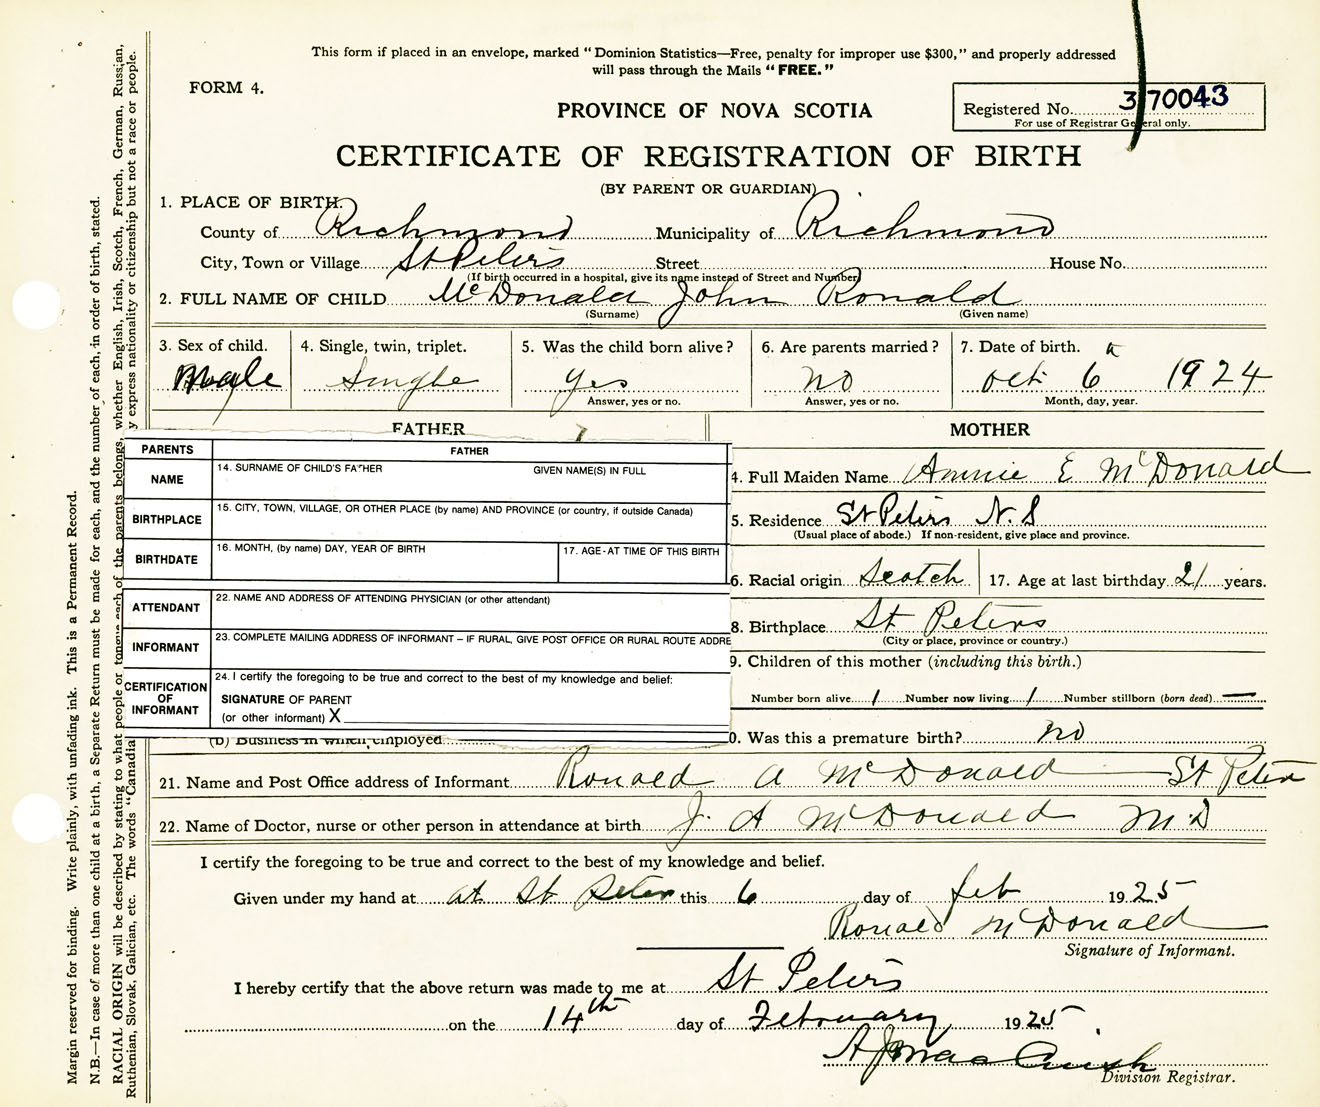 This form if placed in an envelope, marked "Dominion Statistics—Free, penalty for improper use $300," and properly addressed
will pass through the Mails "FREE."
FORM 4.
PROVINCE OF NOVA SCOTIA
Registered No. 370043
For use of Registrar General only.
CERTIFICATE OF REGISTRATION OF BIRTH
(BY PARENT OR GUARDIAN)
1. PLACE OF BIRTH.
County of Richmond Municipality of Richmond
City, Town or Village St Peters Street House No.
(If birth occurred in a hospital, give its name instead of Street and Number)
2. FULL NAME OF CHILD McDonald John Ronald
(Surname) (Given name)
3. Sex of child. 4. Single, twin, triplet. 5. Was the child born alive? 6. Are parents married? 7. Date of birth.
Male Single Yes No Oct 6 1924
Answer, yes or no. Answer, yes or no. Month, day, year.
FATHER MOTHER
PARENTS FATHER
NAME 14. SURNAME OF CHILD'S FATHER GIVEN NAME(S) IN FULL
4. Full Maiden Name Annie E McDonald
BIRTHPLACE 15. CITY, TOWN, VILLAGE, OR OTHER PLACE (by name) AND PROVINCE (or country, if outside Canada)
5. Residence St Peters N.S
(Usual place of abode.) If non-resident, give place and province.
BIRTHDATE 16. MONTH, (by name) DAY, YEAR OF BIRTH 17. AGE-AT TIME OF THIS BIRTH
6. Racial origin Scotch 17. Age at last birthday 21 years.
ATTENDANT 22. NAME AND ADDRESS OF ATTENDING PHYSICIAN (or other attendant)
8. Birthplace St Peters
(City or place, province or country.)
INFORMANT 23. COMPLETE MAILING ADDRESS OF INFORMANT – IF RURAL, GIVE POST OFFICE OR RURAL ROUTE ADDRE
9. Children of this mother (including this birth.)
CERTIFICATION OF INFORMANT 24. I certify the foregoing to be true and correct to the best of my knowledge and belief:
SIGNATURE OF PARENT
(or other informant) X
Number born alive 1 Number now living 1 Number stillborn (born dead) —
(b) Business in which employed 0. Was this a premature birth? No
21. Name and Post Office address of Informant Ronald A McDonald St Peters
22. Name of Doctor, nurse or other person in attendance at birth J. A McDonald M.D
I certify the foregoing to be true and correct to the best of my knowledge and belief.
Given under my hand at at St Peters this 6 day of Feb 1925
Ronald McDonald
Signature of Informant.
I hereby certify that the above return was made to me at St Peters
on the 14th day of February 1925
Division Registrar.
Margin reserved for binding. Write plainly, with unfading ink. This is a Permanent Record.
N.B.—In case of more than one child at a birth, a Separate Return must be made for each, and the number of each, in order of birth, stated.
RACIAL ORIGIN will be described by stating to what people or tongue each of the parents belongs, whether English, Irish, Scotch, French, German, Russian,
Ruthenian, Slovak, Galician, etc. The words "Canadia y express nationality or citizenship but not a race or people.